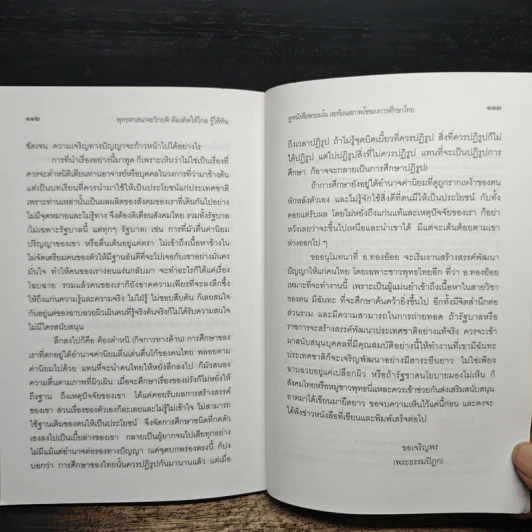 ๑๑๒ พุทธศาสนาจะวิกฤติ ต้องคิดให้ไกล รู้ให้ทัน
ชัดเจน ความเจริญทางปัญญาจะก้าวหน้าไปได้อย่างไร
การที่นำเรื่องอย่างนี้มาพูด ก็เพราะเห็นว่าไม่ใช่เป็นเรื่องที่
ควรจะตำหนิติเตียนท่านอาจารย์หรือบุคคลในวงการที่ว่ามาข้างต้น
แต่เป็นบทเรียนที่ควรนำมาใช้ให้เป็นประโยชน์แก่ประเทศชาติ
เพราะท่านเหล่านั้นก็เป็นผลผลิตของสังคมของเราที่เดินกันไปอย่าง
ไม่มีจุดหมายและไม่รู้ทาง จึงต้องติเตือนสังคมไทย รวมทั้งรัฐบาล
(ไม่เฉพาะรัฐบาลนี้ แต่ทุกๆ รัฐบาล) เช่น การที่มัวตื่นค่านิยม
ปริญญาของเขา หรือตื่นเต้นอยู่แค่ตรา ไม่เข้าถึงเนื้อหาข้างใน
ไม่จัดเตรียมคนของตัวให้มีฐานอันดีที่จะไปเจอกับเขาอย่างมั่นคง
มั่นใจ ทำให้คนของเราอ่อนแอกลับมา จะทำอะไรก็ได้แค่เรื่อง
โฉบฉาย รวมแล้วคนของเราก็ยังขาดความเพียรที่จะลงลึกซึ้ง
ให้ถึงแก่นความรู้และความจริง ไม่ใฝ่รู้ ไม่ชอบสืบค้น ก็เลยสนใจ
กันอยู่แค่ของฉาบฉวยผิวเผินคนที่รู้จริงค้นจริงก็ไม่ได้รับความสนใจ
ไม่มีใครสนับสนุน
ลึกลงไปก็คือ ต้องตำหนิ (กิจการทางด้าน) การศึกษาของ
เราที่ตกอยู่ใต้อำนาจค่านิยมตื่นเต้นตื่นเก้ของคนไทย พลอยตาม
ค่านิยมไปด้วย แทนที่จะนำคนไทยให้หยั่งลึกลงไป ก็มัวสนอง
ความตื่นตามภาพที่ผิวเผิน เมื่อจะศึกษาเรื่องของฝรั่งก็ไม่หยั่งให้
ถึงฐาน ถึงเหตุปัจจัยของเขา ได้แค่คอยรับผลการสร้างสรรค์
ของเขา ส่วนเรื่องของตัวเองก็ละเลยและไม่รู้ไม่เข้าใจ ไม่สามารถ
ใช้ฐานเดิมของตนให้เป็นประโยชน์ จึงจัดการศึกษาชนิดที่กดตัว
เองลงไปเป็นเบี้ยล่างของเขา กลายเป็นผู้ยากจนไปเสียทุกอย่าง
ไม่มีแม้แต่อำนาจต่อรองทางปัญญา (แค่จุดบกพร่องตรงนี้ ก็บ่ง
บอกว่า การศึกษาของไทยนั้นควรปฏิรูปกันมานานแล้ว แต่เมื่อ
ดูหนังสือพระมะโน สะท้อนสภาพไซของการศึกษาไทย ๑๑๓
ถึงเวลาปฏิรูป ถ้าไม่รู้จุดบิดเบี้ยวที่ควรปฏิรูป สิ่งที่ควรปฏิรูปก็ไม่
ได้ปฏิรูป แต่ไปปฏิรูปสิ่งที่ไม่ควรปฏิรูป แทนที่จะเป็นปฏิรูปการ
ศึกษา ก็อาจจะกลายเป็นการศึกษาปฏิรูป)
ถ้าการศึกษายังอยู่ใต้อำนาจค่านิยมที่ดูถูกรากเหง้าของตน
หักหลังตัวเอง และไม่รู้จักใช้สิ่งที่ตนมีให้เป็นประโยชน์ กับทั้ง
คอยแต่รับผล โดยไม่หยั่งถึงแก่นแท้และเหตุปัจจัยของเรา ก็อย่า
หวังเลยว่าจะขึ้นไปเหนือและนำเขาได้ มีแต่จะเต้นต้อยตามเขา
ห่างออกไป ๆ
ขออนุโมทนาที่ อ.ทองย้อย จะเริ่มงานสร้างสรรค์พัฒนา
ปัญญาให้แก่คนไทย โดยเฉพาะชาวพุทธไทยอีก ที่ว่า อ.ทองย้อย
เหมาะที่จะทำงานนี้ เพราะเป็นผู้แม่นยำเข้าถึงเนื้อหาในสายวิชา
ของตน มีฉันทะ ที่จะศึกษาค้นคว้ายิ่งขึ้นไป อีกทั้งมีจิตสำนึกต่อ
ส่วนรวม และมีความสามารถในการถ่ายทอด ถ้ารัฐบาลหรือ
ราชการจะสร้างสรรค์พัฒนาประเทศชาติอย่างแท้จริง ควรจะเข้า
มาสนับสนุนบุคคลที่มีคุณสมบัติอย่างนี้ให้ทำงานที่เขามีฉันทะ
ประเทศชาติก็จะเจริญพัฒนาอย่างมีสาระยืนยาว ไม่ใช่เพียง
ฉาบฉวยอยู่แค่เปลือกผิว หรือถ้ารัฐขาดนโยบายมองไม่เห็น ก็
สังคมไทยหรือหมู่ชาวพุทธนี่แหละควรเข้าช่วยกันส่งเสริมสนับสนุน
อาตมาได้เขียนมายืดยาว ขอจบความเห็นไว้แค่นี้ก่อน และคงจะ
ได้ฟังข่าวหนังสือที่เขียนและพิมพ์เสร็จต่อไป
ขอเจริญพร
(พระธรรมปิฎก)